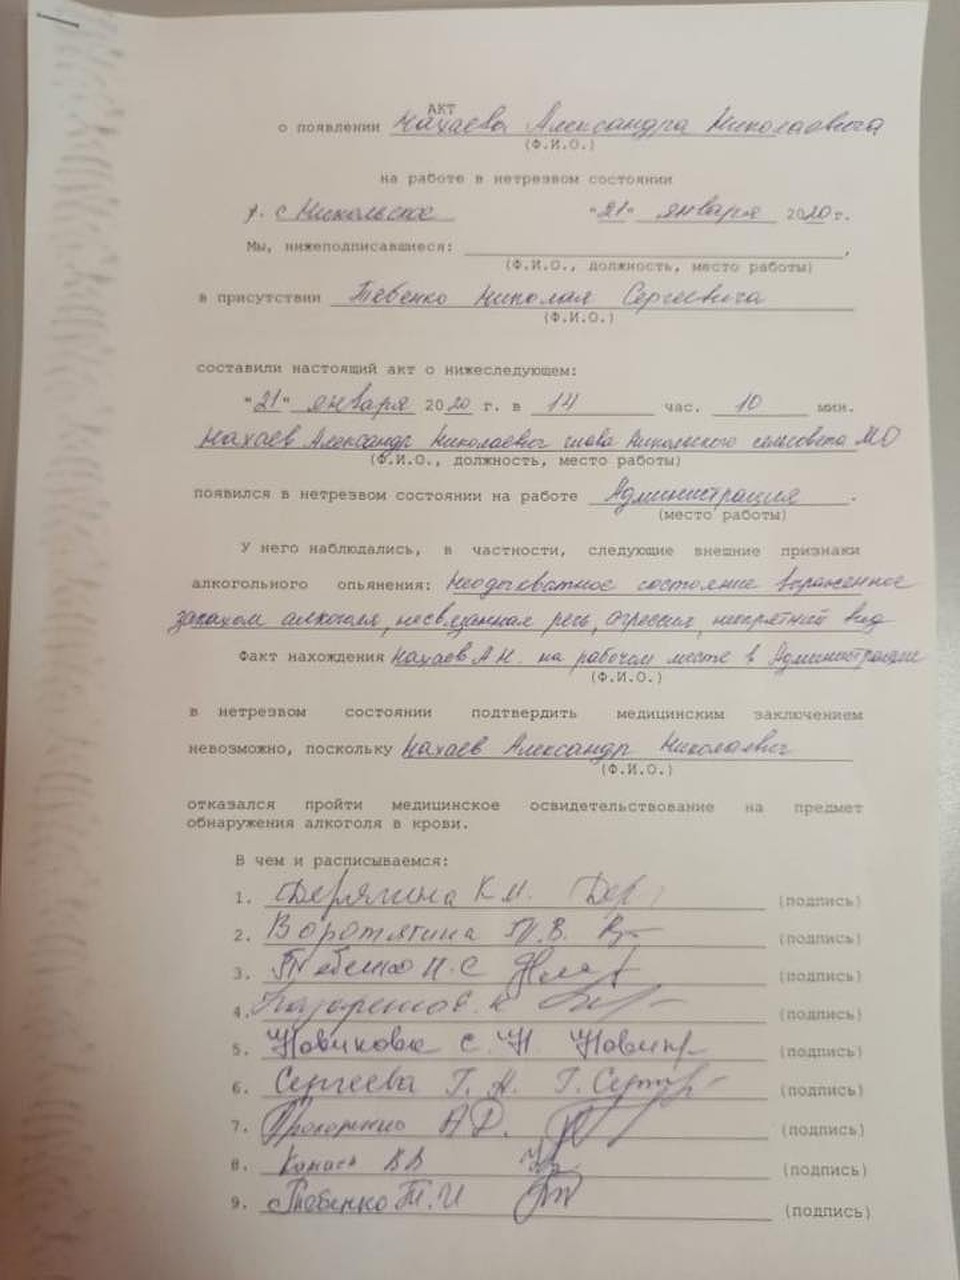 АКТ
о появлении Махаева Александра Николаевича
(Ф.И.О.)
на работе в нетрезвом состоянии
с Никольское "21" января 2020 г.
Мы, нижеподписавшиеся: ,
(Ф.И.О., должность, место работы)
в присутствии Тебенко Николая Сергеевича
(Ф.И.О.)
составили настоящий акт о нижеследующем:
"21" января 2020 г. в 14 час. 10 мин.
Махаев Александр Николаевич глава Никольского сельсовета МО
(Ф.И.О., должность, место работы)
появился в нетрезвом состоянии на работе Администрация .
(место работы)
У него наблюдались, в частности, следующие внешние признаки
алкогольного опьянения: состояние
запахом алкоголя, речь, вид
Факт нахождения Махаев А.Н. на рабочем месте в Администрации
(Ф.И.О.)
в нетрезвом состоянии подтвердить медицинским заключением
невозможно, поскольку Махаев Александр Николаевич
(Ф.И.О.)
отказался пройти медицинское освидетельствование на предмет
обнаружения алкоголя в крови.
В чем и расписываемся:
1. Дерягина К.И. (подпись)
2. В. (подпись)
3. Тебенко Н.С (подпись)
4. (подпись)
5. Новикова С.Н. (подпись)
6. Сергеева Т.Н. (подпись)
7. А.Д. (подпись)
8. ВВ (подпись)
9. Тебенко Т.И (подпись)